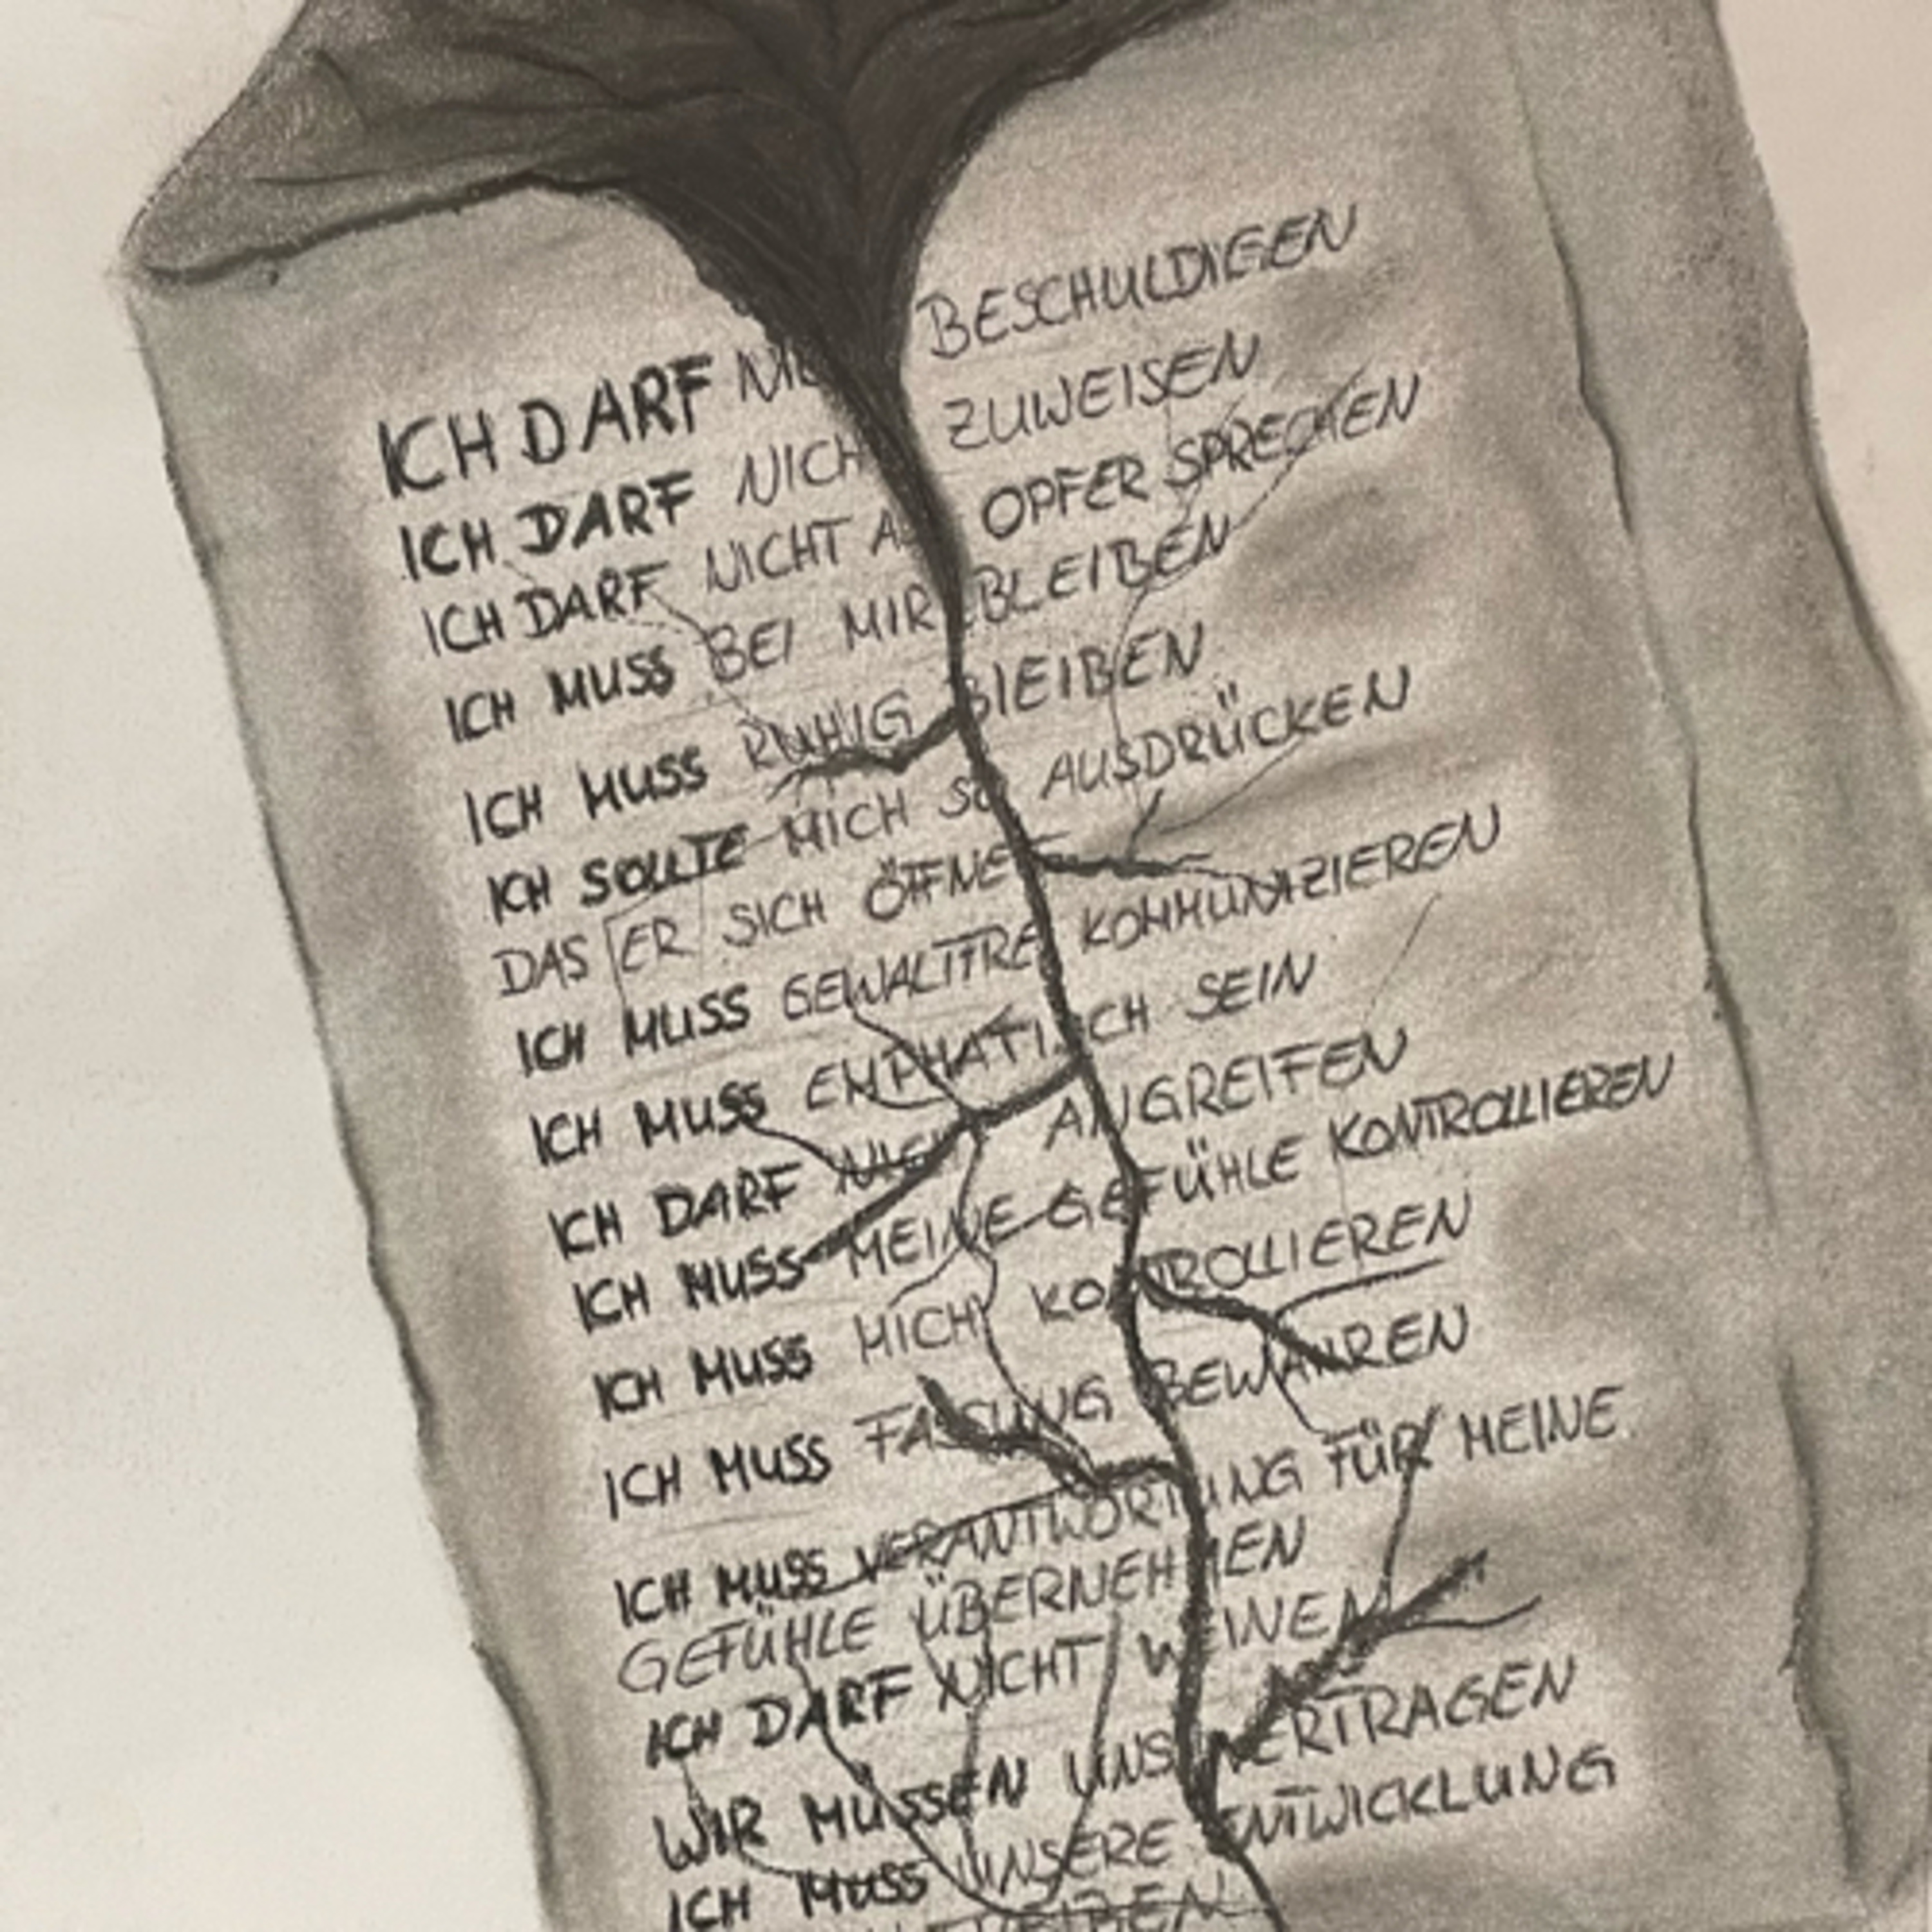 ICH DARF NIC BESCHULDIGEN
ICH DARF NICH ZUWEISEN
ICH DARF NICHT A OPFER SPRECHEN
ICH MUSS BEI MIR BLEIBEN
ICH MUSS RUHIG BLEIBEN
ICH SOLLTE MICH SO AUSDRÜCKEN
DAS ER SICH ÖFFNET
ICH MUSS GEWALTFREI KOMMUNIZIEREN
ICH MUSS EMPHATISCH SEIN
ICH DARF NICH ANGREIFEN
ICH MUSS MEINE GEFÜHLE KONTROLLIEREN
ICH MUSS MICH KONTROLLIEREN
ICH MUSS FASSUNG BEWAHREN
ICH MUSS VERANTWORTUNG FÜR MEINE
GEFÜHLE ÜBERNEHMEN
ICH DARF NICHT WEINEN
WIR MÜSSEN UNS VERTRAGEN
ICH MUSS UNSERE ENTWICKLUNG